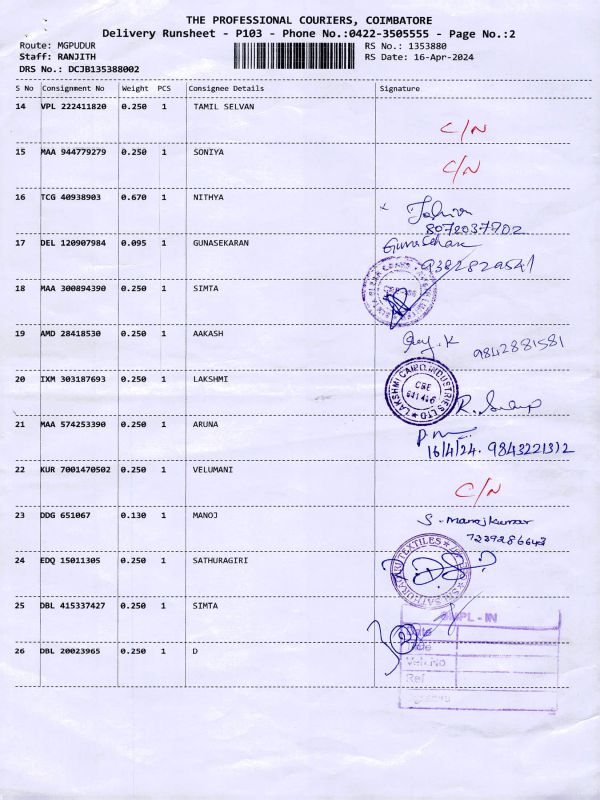 THE PROFESSIONAL COURIERS, COIMBATORE
Delivery Runsheet - P103 - Phone No.:0422-3505555 - Page No.:2
Route: MGPUDUR RS No.: 1353880
Staff: RANJITH RS Date: 16-Apr-2024
DRS No.: DCJB135388002
S No Consignment No Weight PCS Consignee Details Signature
14 VPL 222411820 0.250 1 TAMIL SELVAN
C/N
15 MAA 944779279 0.250 1 SONIYA
C/N
16 TCG 40938903 0.670 1 NITHYA
8072037702
17 DEL 120907984 0.095 1 GUNASEKARAN Gunasekaran
9382829541
18 MAA 300894390 0.250 1 SIMTA
19 AMD 28418530 0.250 1 AAKASH
9842881581
20 IXM 303187693 0.250 1 LAKSHMI
LAKSHMI CAIPO INDUSTRIES LTD
CBE
641 406
21 MAA 574253390 0.250 1 ARUNA
16/4/24. 9843221312
22 KUR 7001470502 0.250 1 VELUMANI
C/N
23 DDG 651067 0.130 1 MANOJ S. Manojkumar
7239286643
24 EDQ 15011305 0.250 1 SATHURAGIRI
25 DBL 415337427 0.250 1 SIMTA
- IN
Date
26 DBL 20023965 0.250 1 D
Veh.No
Ref